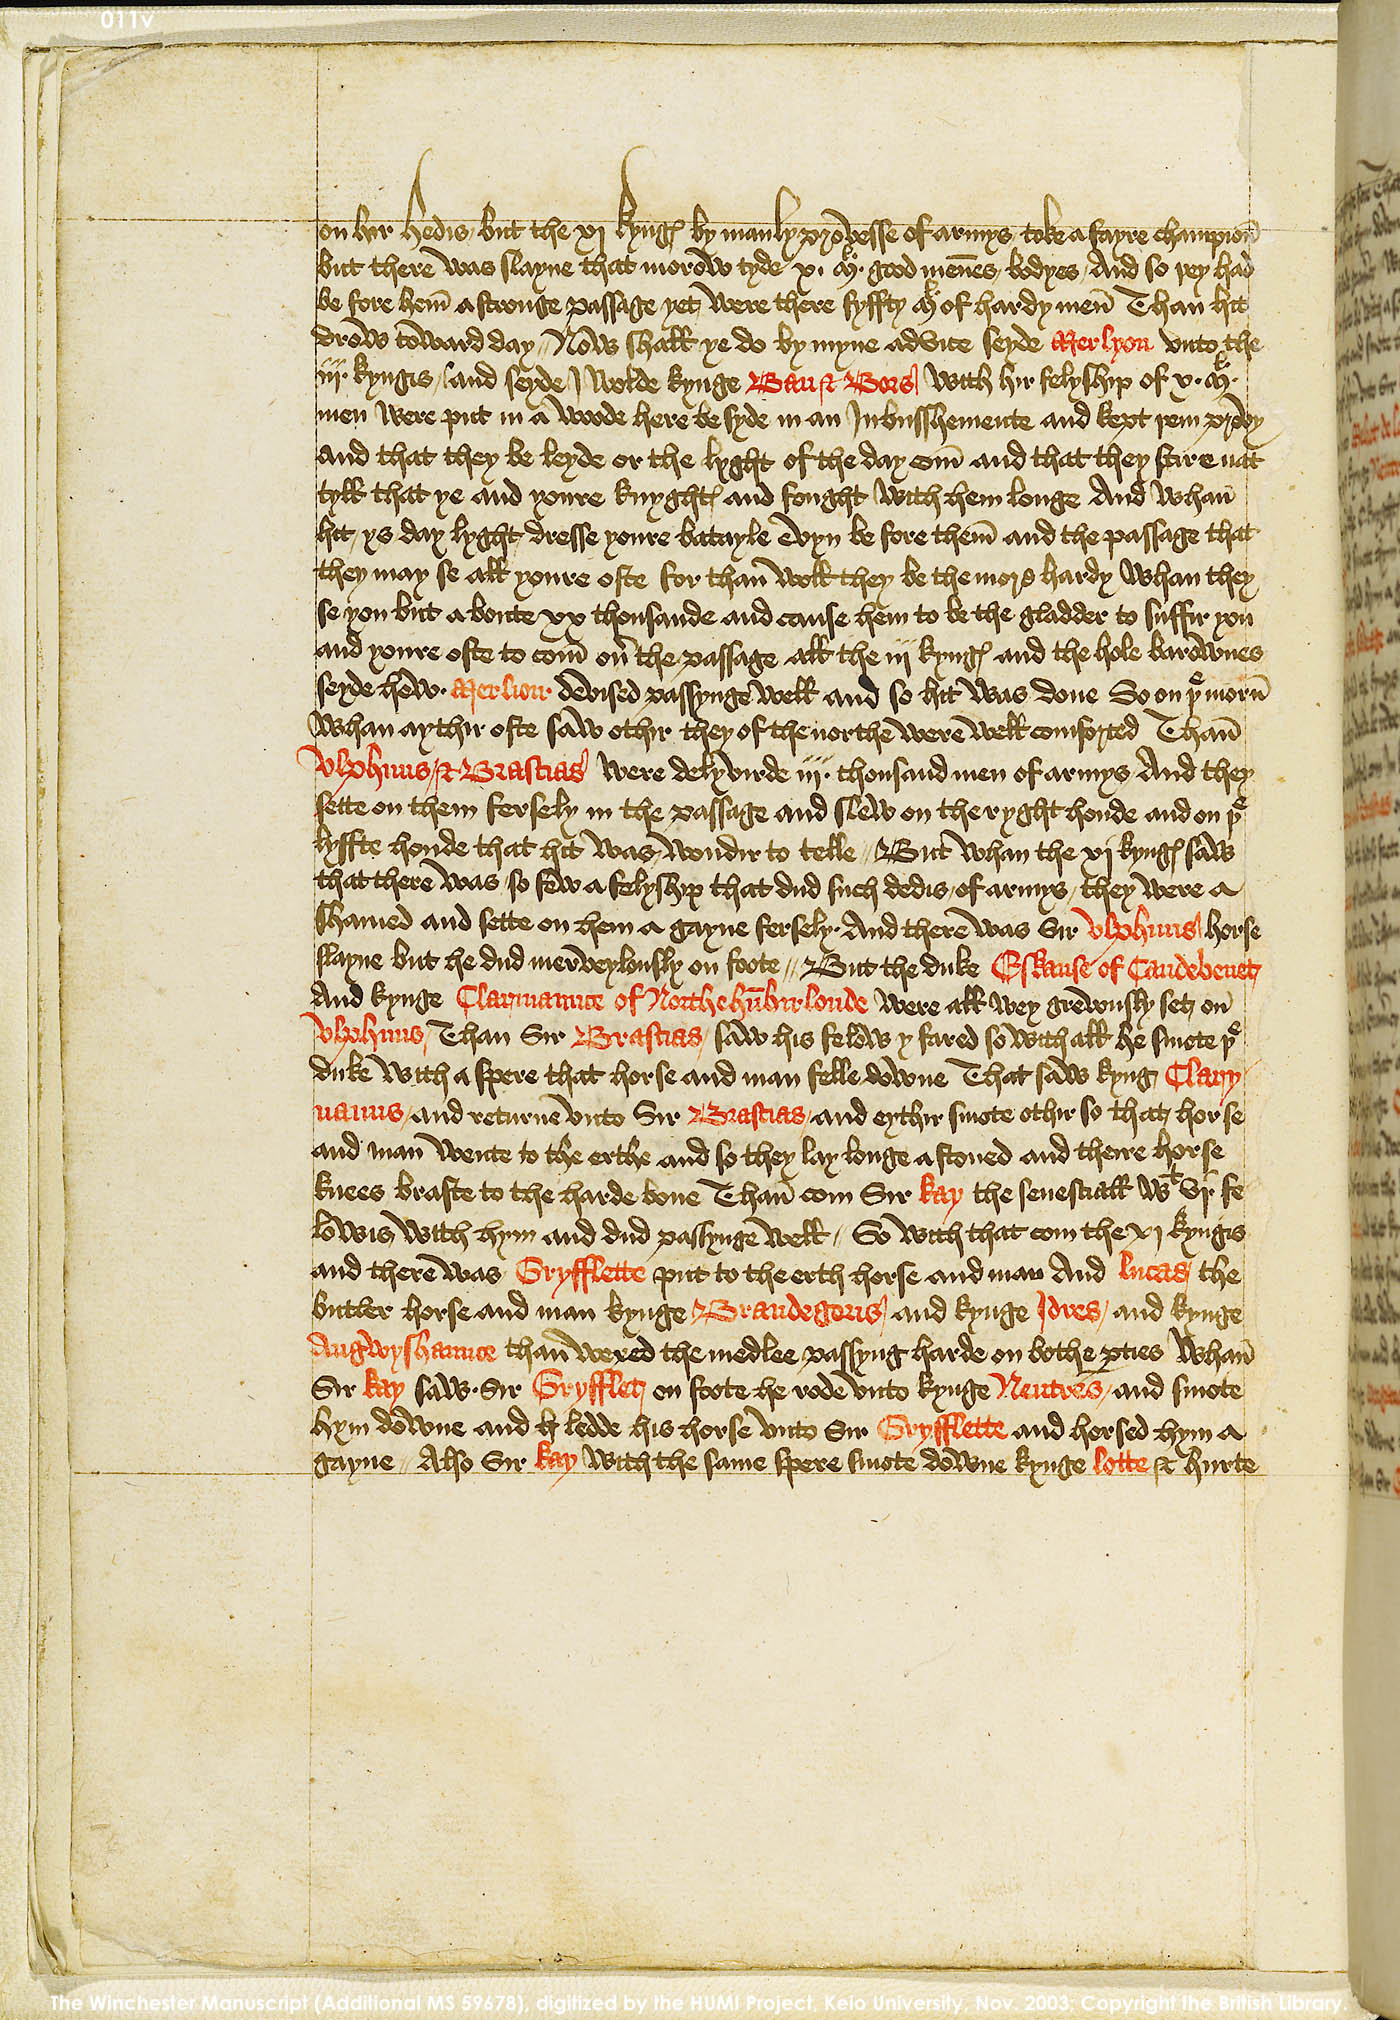 011v
on her hedis but the xj kyngꝭ by manly prowesse of armys toke a fayre champion̄
but there was slayne that morow tyde x. Mˡ. good mēnes bodyes And so þey had
be fore hem̄ a stronge passage yet were there fyffty Mˡ of hardy men̄ Than hit
drow toward day // Now shall ye do by myne advice seyde Merlyon vnto the
iij. kyngis / and seyde I wolde kynge Ban & Bors with hir felyship of x. Mˡ.
men were put in a woode here be syde in an Inbusshemente and kept þem prevy
and that they be leyde or the lyght of the day com̄ and that they stire nat
tyll that ye and youre knyghtꝭ and fought with hem longe And whan̄
hit ys day lyght dresse youre batayle evyn be fore them̄ and the passage that
they may se all youre oste for than̄ woll they be the more hardy whan they
se you but a boute xx thousande and cause hem to be the gladder to suffir you
and youre oste to com̄ on̄ the passage all the iij kyngꝭ and the hole barownes
seyde how Merlion devised passynge well and so hit was done So on þᵉ morn̄
whan aythir oste saw othir they of the northe were well comforted Than̄
Vlphuus & Brascias were delyvirde iij. thousand men of armys And they
sette on them fersely in the passage and slew on the ryght honde and on þᵉ
lyffte honde that hit was wondir to telle // But whan the xj kyngꝭ saw
that there was so few a felyship that dud such dedis of armys they were a
shamed and sette on hem a gayne fersely. And there was Sir Vlphuns horse
slayne but he dud merveylously on foote // But the duke Eskanse of Candebenet
And kynge Clarinaunce of Northehūbirlonde were all wey grevously set on̄
Vlphuns Than Sir Brascias saw his felow y fared so with all he smote þᵉ
duke with a spere that horse and man felle downe That saw kyng Clary
naunus and returne vnto Sir Brascias and eythir smote othir so that horse
and man wente to the erthe and so they lay longe astoned and theire horse
knees braste to the harde bone Than̄ com Sir kay the senesciall wᵗ vj. fe
lowis with hym and dud passynge well // So with that com the xj kyngis
and there was Gryfflette put to the erth horse and man And lucas the
butler horse and man kynge Brandegoris and kynge Idres and kynge
Angwyshaunce than̄ wexed the medlee passyng harde on bothe pties whan̄
Sir kay saw. Sir Gryfflet on foote he rode vnto kynge Nentres and smote
hym downe and ledde his horse vnto Sir Gryfflette and horsed hym a
gayne // Also Sir kay with the same spere smote downe kynge lotte & hurte
The Winchester Manuscript (Additional MS 59678), digitized by the HUMI Project, Keio University, Nov. 2003; Copyright the British Library.